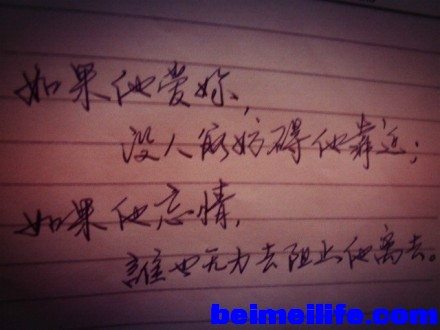 如果他愛妳,
没人能妨碍他靠近;
如果他忘情,
誰也无力去阻止他离去。
beimeilife.com